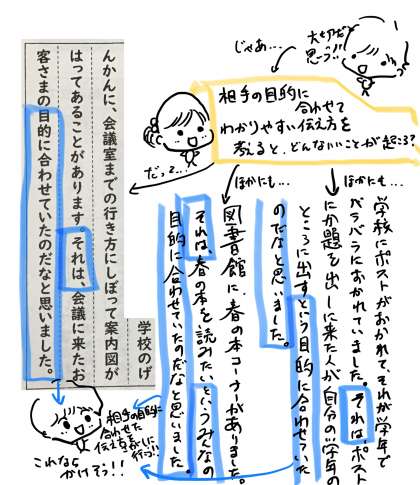 思う!!
じゃあ…
相手の目的に
合わせて
わかりやすい伝え方を
考えると、どんないいことが起こる?
だって…
学校のげ
んかんに、会議室までの行き方にしぼって案内図が
はってあることがあります。それは、会議に来たお
客さまの目的に合わせていたのだなと思いました。
ほかにも…
図書館に、春の本コーナーがありました。
それは、春の本を読みたいというみなの
目的に合わせていたのだなと思いました。
ほかにも…
学校にポストがおかれて、それが学年で
バラバラにおかれていました。それはポスト
にか題を出しに来た人が自分の学年の
ところに出すという目的に合わせていた
のだなと思いました。
相手の目的に
合わせた
伝え方をさがしに
行こう!!
これなら
かけそう!!